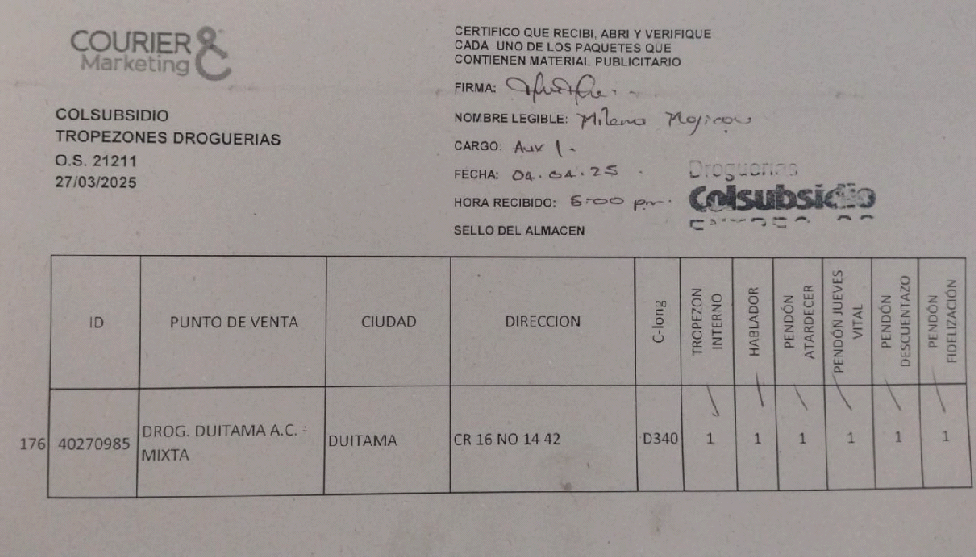 COURIER &
Marketing
COLSUBSIDIO
TROPEZONES DROGUERIAS
O.S. 21211
27/03/2025
CERTIFICO QUE RECIBI, ABRI Y VERIFIQUE
CADA UNO DE LOS PAQUETES QUE
CONTIENEN MATERIAL PUBLICITARIO
FIRMA:
NOMBRE LEGIBLE: Milena
CARGO: Aux 1.
FECHA: 04.04.25
HORA RECIBIDO: 5:00 pm.
SELLO DEL ALMACEN
Droguerías
Colsubsidio
ID PUNTO DE VENTA CIUDAD DIRECCION C-long TROPEZON INTERNO HABLADOR PENDÓN ATARDECER PENDÓN JUEVES VITAL PENDÓN DESCUENTAZO PENDÓN FIDELIZACIÓN
176 40270985 DROG. DUITAMA A.C. - MIXTA DUITAMA CR 16 NO 14 42 D340 1 1 1 1 1 1